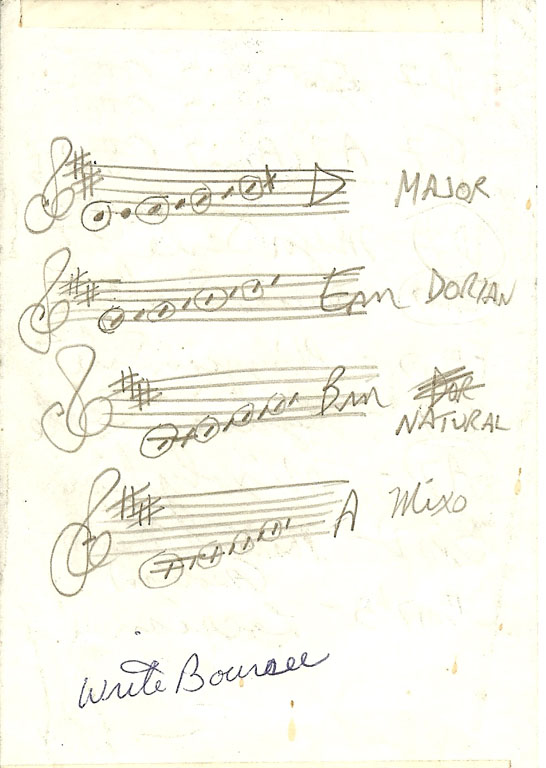 D MAJOR
Em DORIAN
Bm DOR
NATURAL
A Mixo
Write Bouree